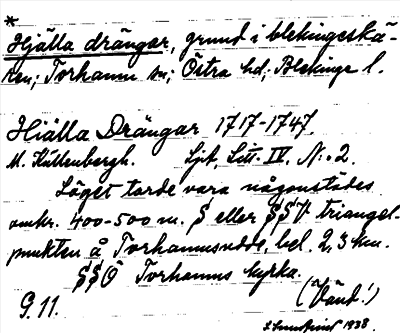 *
Hjälla drängar, grund i blekingeskä-
ren; Torhamn sn; Östra hd; Blekinge l.
Hiälla Drängar 1717-1747.
M. Källenbergh. Sjk. Litt. IV. N:o 2.
Läget torde vara någonstädes
omkr. 400-500 m. S eller SSV triangel-
punkten å Torhamnsudde, bel. 2,3 km.
SSÖ Torhamns kyrka.
(Vänd!)
G. 11.
1938.